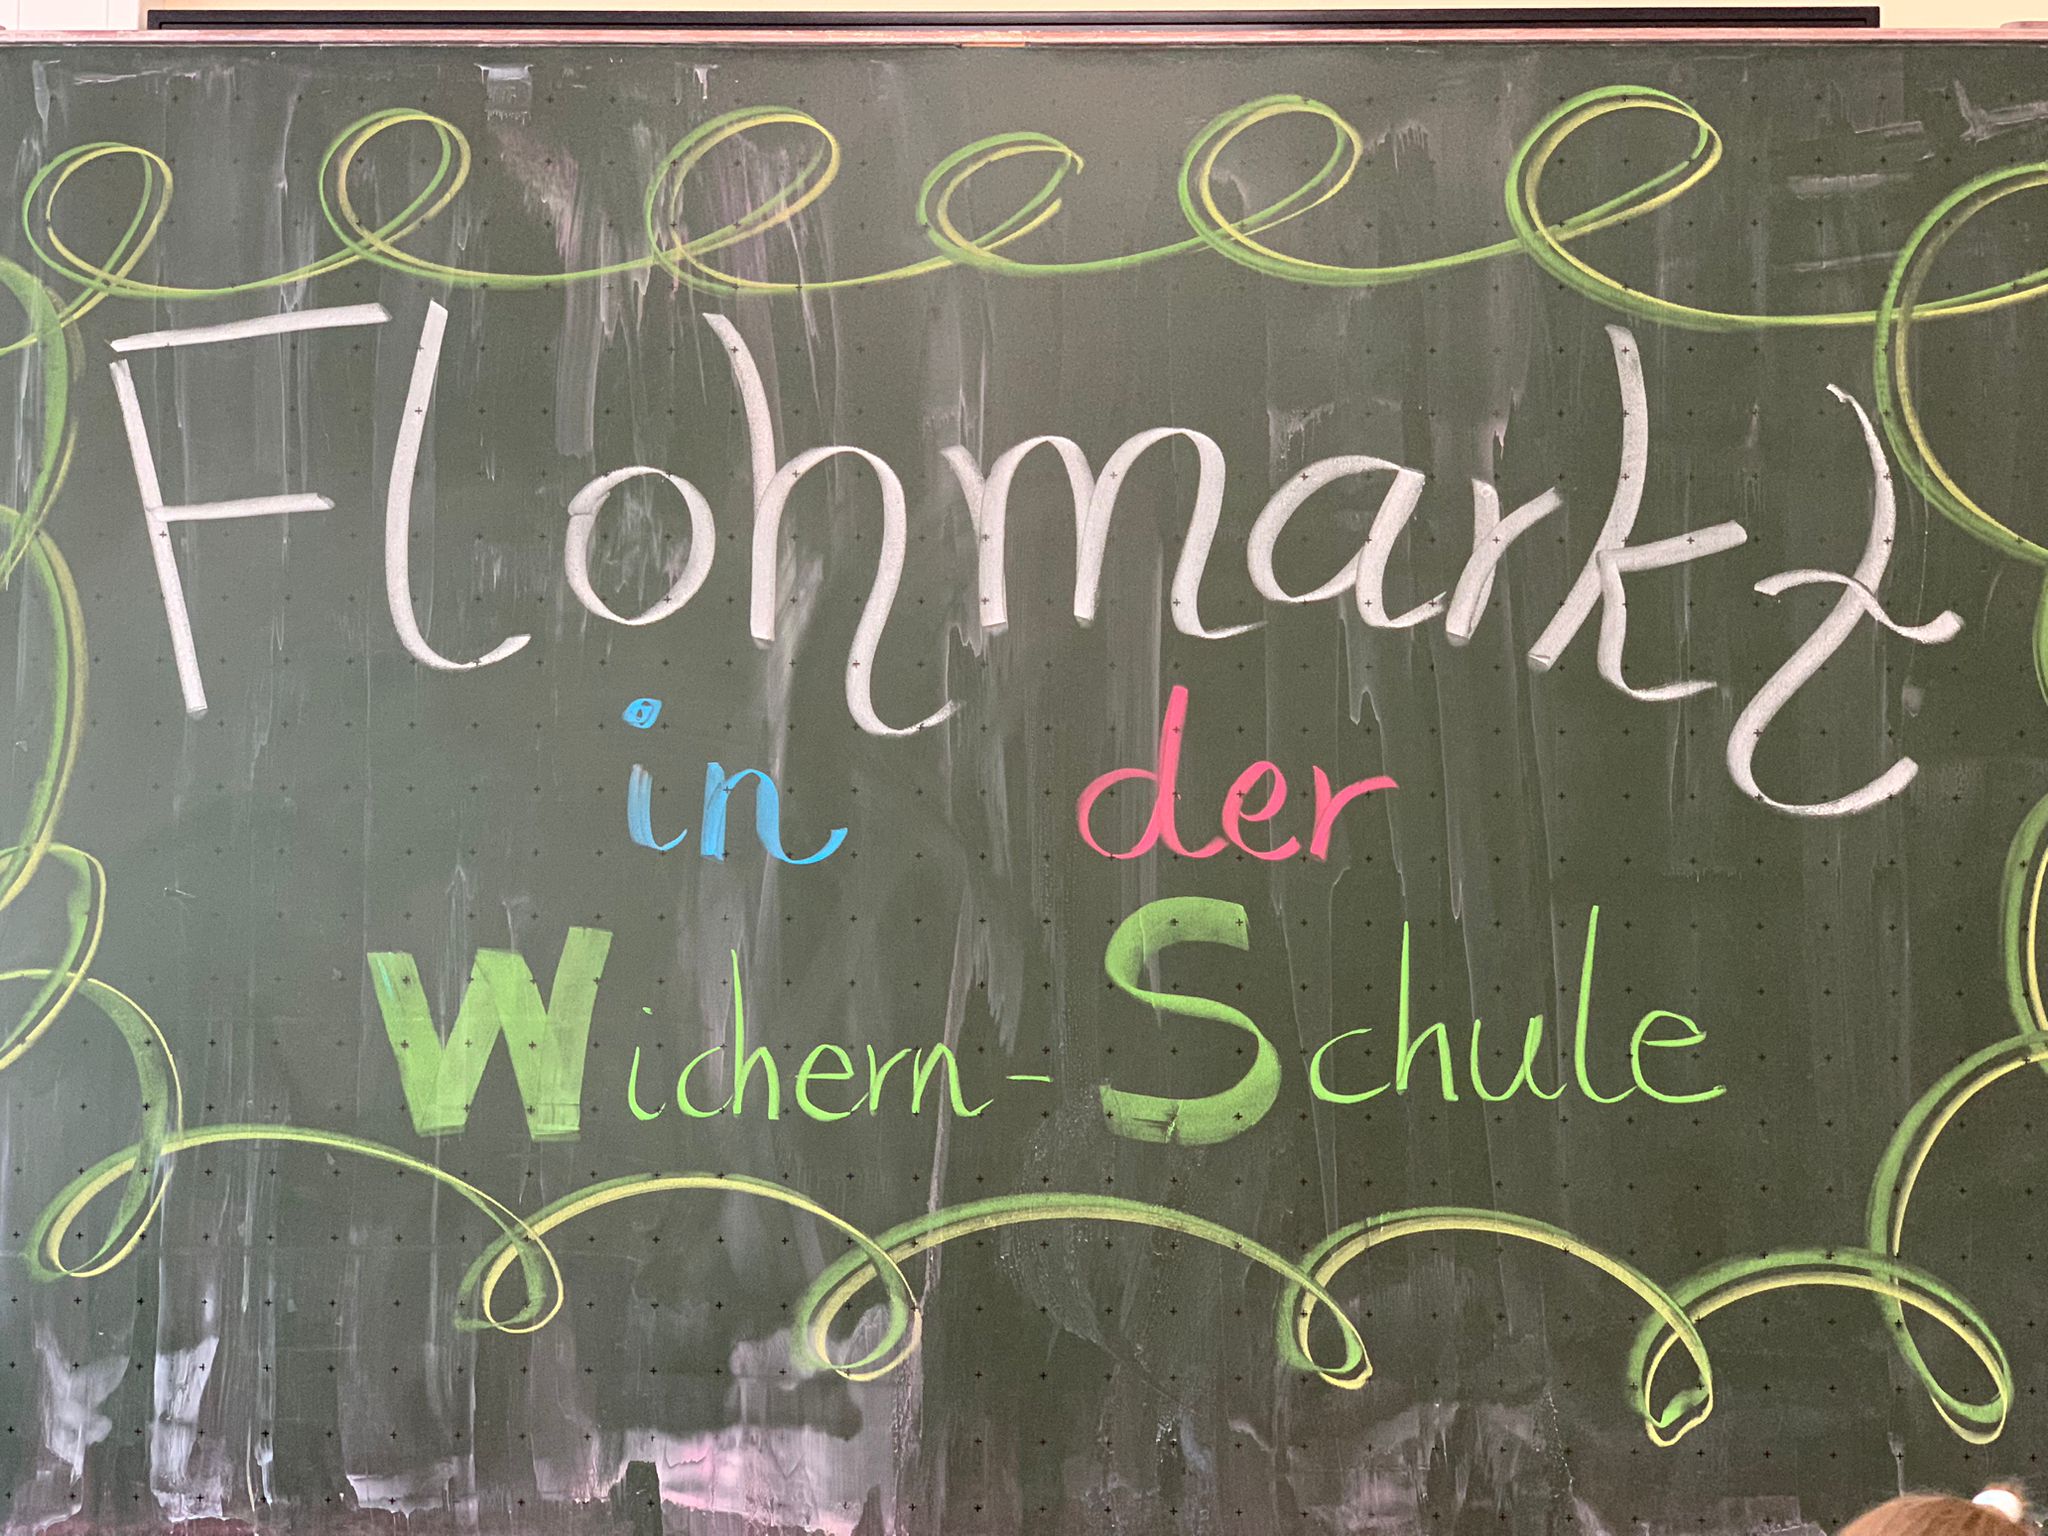 Flohmarkt
in der
Wichern-Schule